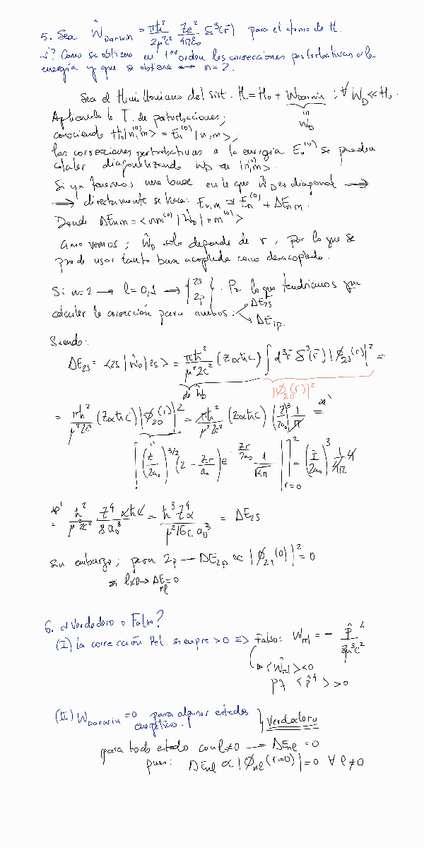 5. Sea Ŵ_Darwin = πħ²/2μ²c² Ze²/4πε₀ δ³(r̄) para el átomo de H.
¿Cómo se obtiene en 1er orden las correcciones perturbativas a la
energía y que se obtiene n=2.
Sea el Hamiltoniano del sist. H = H₀ + W_Darwin ; ∀ W_D << H₀
Aplicando la T. de perturbaciones;
conociendo
las correcciones perturbativas a la energía E_n^(0) se pueden
calcular diagonalizando W_D
Si ya tenemos una base en la que Ŵ_D es diagonal →
→ directamente se hace: E_{n,m} ≈ E_n^(0) + ΔE_{n,m}.
Donde ΔE_nm = <nm^(0)| Ŵ_D |nm^(0)>
Como vemos; Ŵ_D solo depende de r, por lo que se
puede usar tanto base acoplada como desacoplada.
Si n=2 → l=0,1 → {2s 2p}. Por lo que tendríamos que
calcular la corrección para ambos: ΔE_2s ΔE_2p.
Siendo:
ΔE_2s = <2s|Ŵ_D|2s> = πħ²/μ²2c² (Zαħc) ∫ d³r̄ δ³(r̄) |Φ_20(r̄)|² =
de Ŵ_D |Φ_20(r)|²
= πħ²/μ²2c² (Zαħc) |Φ_20(r)|² = πħ²/μ²2c² (Zαħc)
[(Z/2a₀)^{3/2} (2 − Zr/a₀) e^{−Zr/2a₀} 1/√4π]²|_{r=0} = (Z/2a₀)³ 1/4π 4
= ħ²/μ²2c² Z⁴/8a₀³ αħc = ħ³Z⁴α/μ²16c a₀³ = ΔE_2s
Sin embargo; para 2p → ΔE_2p ∝ |Φ_21(0)|² = 0
si l≠0 → ΔE_nl = 0
6. ¿Verdadero o Falso?
(I) La corrección Rel. siempre >0 => Falso: W_rel = − p̂⁴/8μ³c²
→ <Ŵ_rel> <0
pq <p̂⁴> >0
(II) W_Darwin =0 para algunos estados
energéticos. } Verdadero
para todo estado con l≠0 → ΔE_nl = 0
pues: ΔE_nl ∝ |Φ_nl(r=0)| = 0 ∀ l≠0